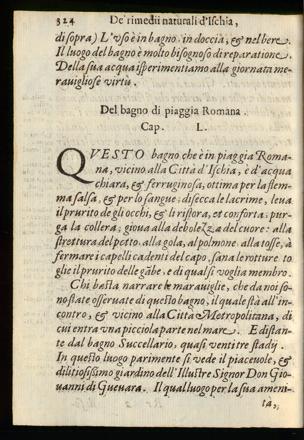 324 De' rimedii naturali d'Ischia,
di sopra) L'vso è in bagno. in doccia, & nel bere.
Il luogo del bagno è molto bisognoso di reparatione.
Della sua acqua isperimentiamo alla giornata me-
rauigliose virtù.
Del bagno di piaggia Romana.
Cap. L.
QVESTO bagno che è in piaggia Roma-
na, vicino alla Città d'Ischia, è d'acqua
chiara, & ferruginosa, ottima per la flem-
ma salsa, & per lo sangue: disecca le lacrime, leua
il prurito de gli occhi, & li ristora, et conforta: pur-
ga la collera; gioua alla debolezza del cuore: alla
strettura del petto. alla gola, al polmone. alla tosse, à
fermare i capelli cadenti del capo, sana le rotture to
glie il prurito delle gãbe. e di qual si voglia membro.
Chi basta narrare le marauiglie, che da noi so-
no state osseruate di questo bagno, il quale stà all'in-
contro, & vicino alla Città Metropolitana, di
cui entra vna picciola parte nel mare. E distan-
te dal bagno Succellario, quasi ventitre stadij.
In questo luogo parimente si vede il piaceuole, &
dilitiosissimo giardino dell'Illustre Signor Don Gio-
uanni di Gueuara. Il qual luogo per la sua ameni-
tà,